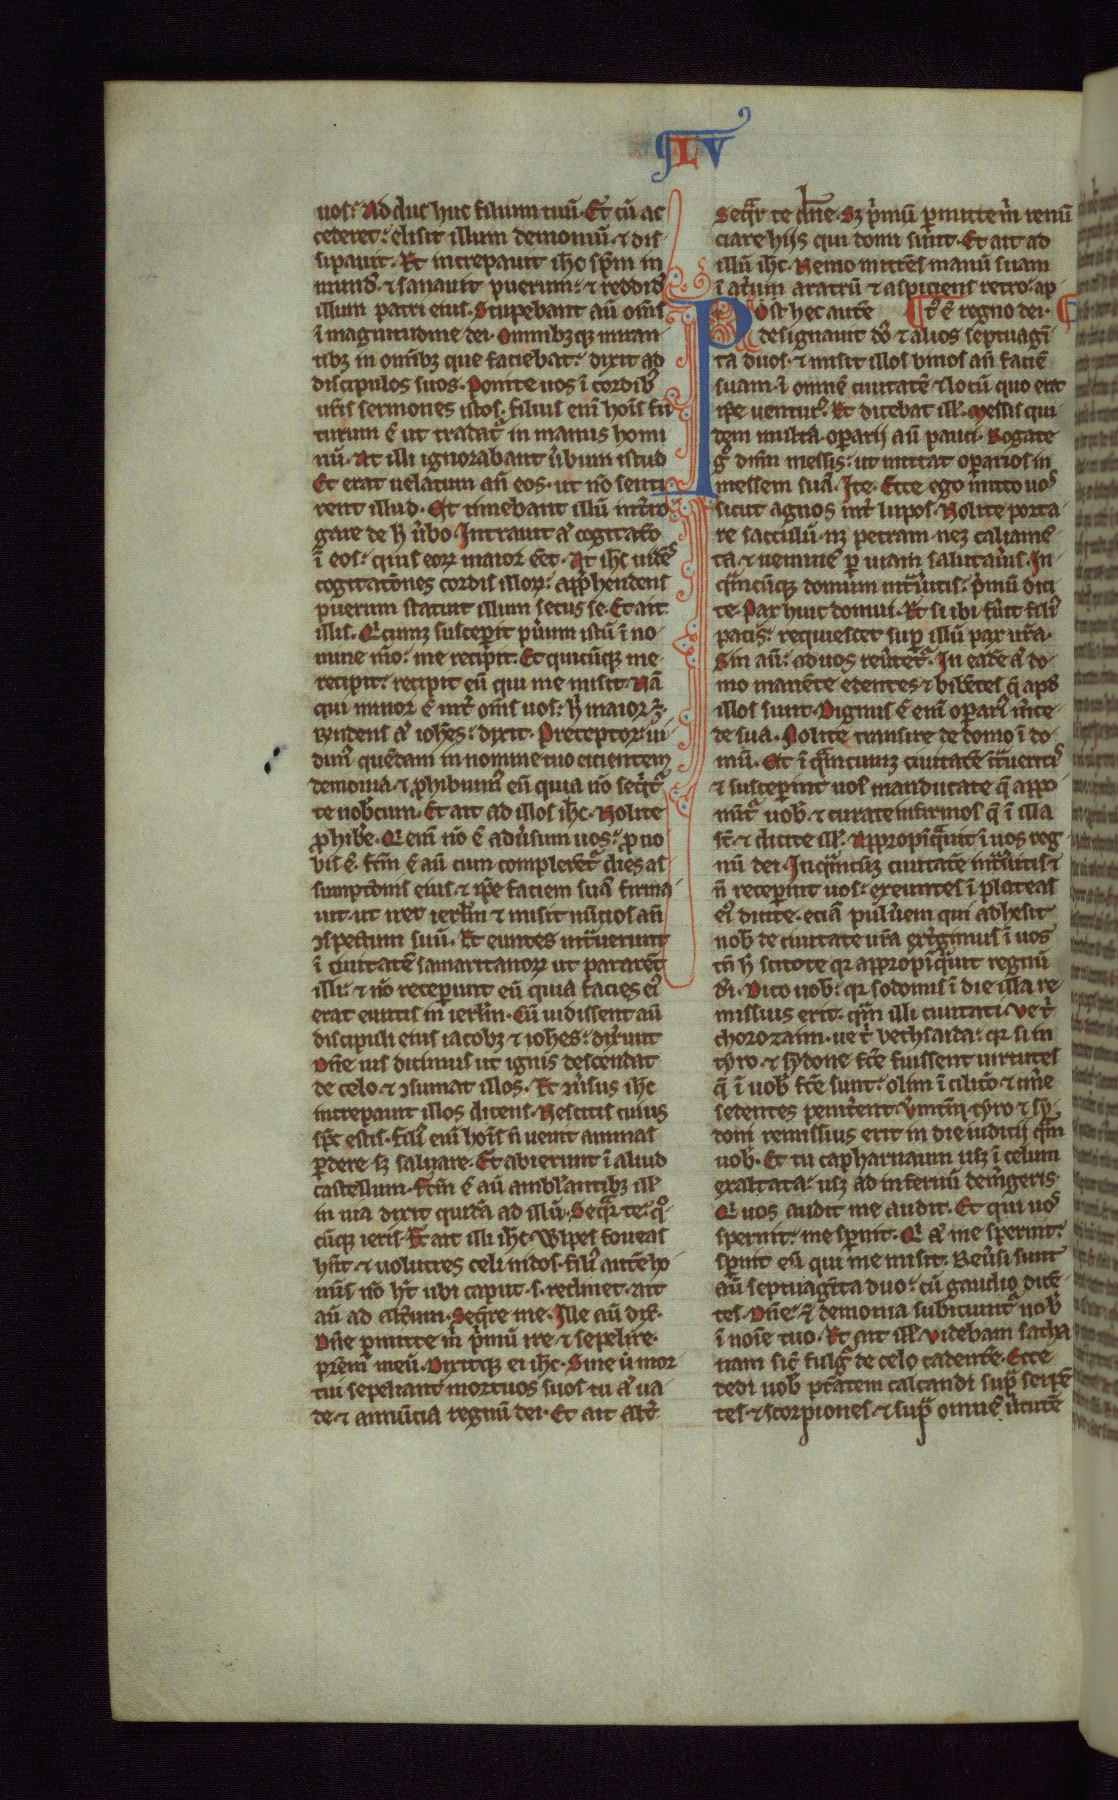 LV
uos? Adduc huc filium tuū. Et cū ac
cederet: elisit illum demoniū. ⁊ dis
sipauit. Et increpauit ihc sp̄m in
mund᷒. ⁊ sanauit puerum: ⁊ reddid᷒
illum patri eius. Stupebant aū om̄s
ī magnitudine dei. Omnibꝫqꝫ miran
tibꝫ in om̄ibꝫ que faciebat: dixit ad
discipulos suos. Ponite uos ī cordibꝰ
ur̄is sermones istos. filius eni᷒ hoīs fu
turum ē ut tradat᷒ in manus homi
nū. At illi ignorabant ūbum istud
Et erat uelatum an̄ eos. ut nō senti
rent illud. Et timebant illū int̄ro
gare de h̄ ūbo. Intrauit aꝰ cogitat̄o
ī eos: quis eoꝝ maior eēt. At ihc uidēs
cogitatōnes cordis illoꝝ: app̄hendens
puerum statuit illum secus se. Et ait
illis. Qͥcumqꝫ suscep̄it pūum istū ī no
mine mō: me recipit. Et quicūqꝫ me
recip̄it: recipit eū qui me misit. Nā
qui minor ē int̄ om̄s uos: h̄ maior ē.
Rn̄dens aꝰ ioh̄es: dixit. Preceptor: ui
dimꝰ quēdam in nomine tuo eicientem
demonia. ⁊ ꝓhibuimꝰ eū quia nō seqͥt᷒
te nobcum. Et ait ad illos ih̄c. Nolite
ꝓhibe᷒. Qͥ eni᷒ nō ē adūsum uos: ꝓ uo
bis ē. fc̄m ē aū cum complerēt᷒ dies as
sumptōnis eius. ⁊ ip̄e faciem suā firma
uit. ut iret ierl̄m ⁊ misit nūcios an̄
ꝯspectum suū. Et euntes int̄uerunt
ī ciuitatē samaritanoꝝ ut pararēt
illi: ⁊ nō receperunt eū quia facies eiꝰ
erat euntis in ierl̄m. Cū uidissent aū
discipuli eius iacobꝫ ⁊ iohes: dixerunt
Dn̄e uis dicimus ut ignis descendat
de celo. ⁊ ꝯsumat illos. Et ūsus ihc
increpauit illos dicens. Nescitis cuius
sp̄c estis. filiꝰ eni᷒ hoīs n̄ uenit animas
ꝑdere sꝫ saluare. Et abierunt ī aliud
castellum. fc̄m ē aū ambl̄antibꝫ ill᷒
in uia dixit quidā ad illū. Seqͣr te: qͦ
cūqꝫ ieris. Et ait illi ih̄c. Wlpes foueas
hn̄t ⁊ uolucres celi nidos. filiꝰ autē ho
mīs nō h̄t ubi caput. s. reclinet. ait
aū ad alt̄um. Seqͣre me. Ille aū dix᷒.
Dn̄e ꝑmitte m̄ pͥmū ire ⁊ sepelire.
pr̄em meū. Dixitqꝫ ei ihc. Sine ū mor
tui sepeliant mortuos suos tu aꝰ ua
de. ⁊ annūcia regnū dei. Et ait alt̄
Seqͣr te dn̄e. Sꝫ pͥmū ꝑmitte m̄ renū
ciare hijs qui domi sūt. Et ait ad
illū ihc. Nemo mittēs manū suam
ī at̄um aratrū ⁊ aspiciens retro: ap
Post hec autē ¶ t᷒ ē regno dei.
designauit dō ⁊ alios septuagī
ta duos. ⁊ misit illos binos an̄ faciē
suam. ī omnē ciuitatē ⁊ locū quo erat
ip̄e uenturꝰ. Et dicebat ill᷒. Messis qui
dem multa. oꝑarij aū pauci. Rogate
gͦ dn̄m messis: ut mittat oꝑarios in
messem suā. Ite. Ecce ego mitto uos
sicut agnos int̄ lupos. Nolite porta
re sacculū. nꝫ peram. neqꝫ calciamē
ta. ⁊ neminē ꝑ uiam salutaūis. In
qͣmcūqꝫ domum int̄ūitis: pͥmū dici
te. Pax huic domui. Et si ibi fūit filiꝰ
pacis: requiescet suꝑ illū pax ur̄a.
Sin aū: ad uos reūtet᷒. In eadē aꝰ do
mo manēte edentes ⁊ bibētes q̄ apd᷒
illos sunt. Dignus ē eni᷒ oꝑariꝰ m̄ce
de sua. Nolite transire de domo ī do
mū. Et ī qͣmcumqꝫ ciuitatē īt̄uerit᷒
⁊ suscepint uos manducate q̄ appo
nūt᷒ uob᷒. ⁊ curate infirmos q̄ ī illa
st̄. ⁊ dicite ill᷒. Appropīqͣuit ī uos reg
nū dei. In qͣmcūqꝫ ciuitatē int̄uitis ⁊
n̄ receꝑint uos: exeuntes ī plateas
eiꝰ dicite. eciā pulūem qui adhesit
nob᷒ de ciuitate ur̄a ext̄gimus ī uos
tn̄ h̄ scitote qr appropīqͣuit regnū
dī. Dico uob᷒: qr sodomis ī die illa re
missius erit. qͣm illi ciuitati. Ve t᷒
chorozaim. ue t᷒ bethsaida: qr si in
tyro. ⁊ sydone fc̄e fuissent uirtutes
q̄ ī uob᷒ fc̄e sunt: olim ī cilicō. ⁊ cin̄e
sedentes penit̄ent. Ūmtn̄. tyro ⁊ sy
doni remissius erit in die iudicij qͣm
uob᷒. Et tu capharnaum usqꝫ ī celum
exaltata: usqꝫ ad infernū dem̄geris.
Qͥ uos audit me audit. Et qui uos
spernit: me sꝑnit. Qͥ aꝰ me spernit:
sꝑnit eū qui me misit. Reūsi sunt
aū septuagīta duo: cū gaudio dicē
tes. Dn̄e. ⁊ demonia subiciunt᷒ nob᷒
ī noīe tuo. Et ait ill᷒. Videbam satha
nam sic̄ fulg᷒ de celo cadentē. Ecce
dedi uob᷒ ptātem calcandi supͣ serpē
tes. ⁊ scorpiones. ⁊ supͣ omnē ūtutē